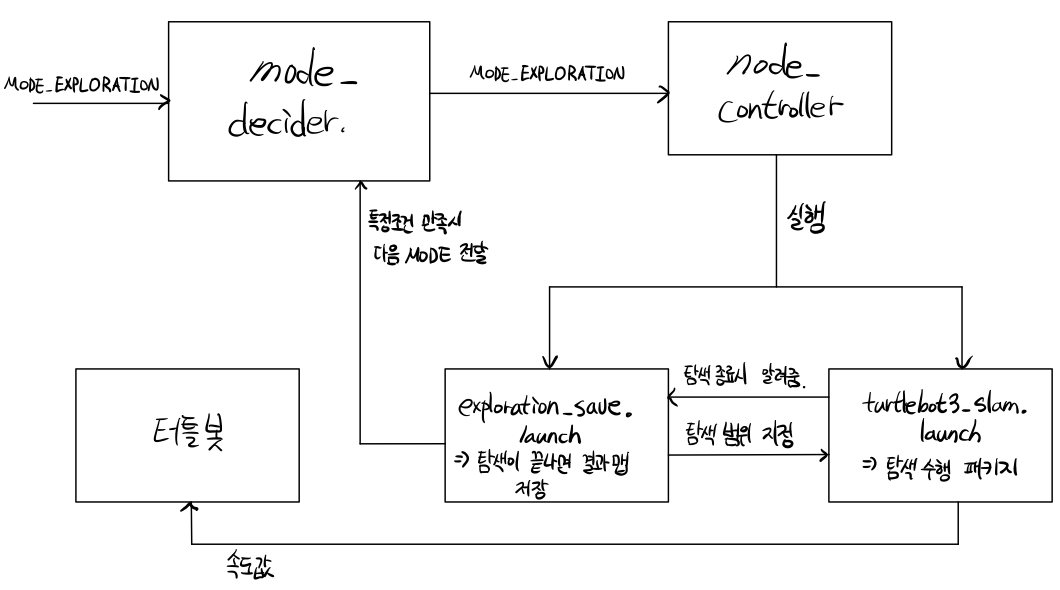 MODE_EXPLORATION
mode_
decider.
MODE_EXPLORATION
node_
controller
특정조건 만족시
다음 MODE 전달
실행
터틀봇
exploration_save.
launch
=> 탐색이 끝나면 결과맵
저장
탐색 종료시 알려줌.
탐색 범위 지정
turtlebot3_slam.
launch
=> 탐색 수행 패키지
속도값